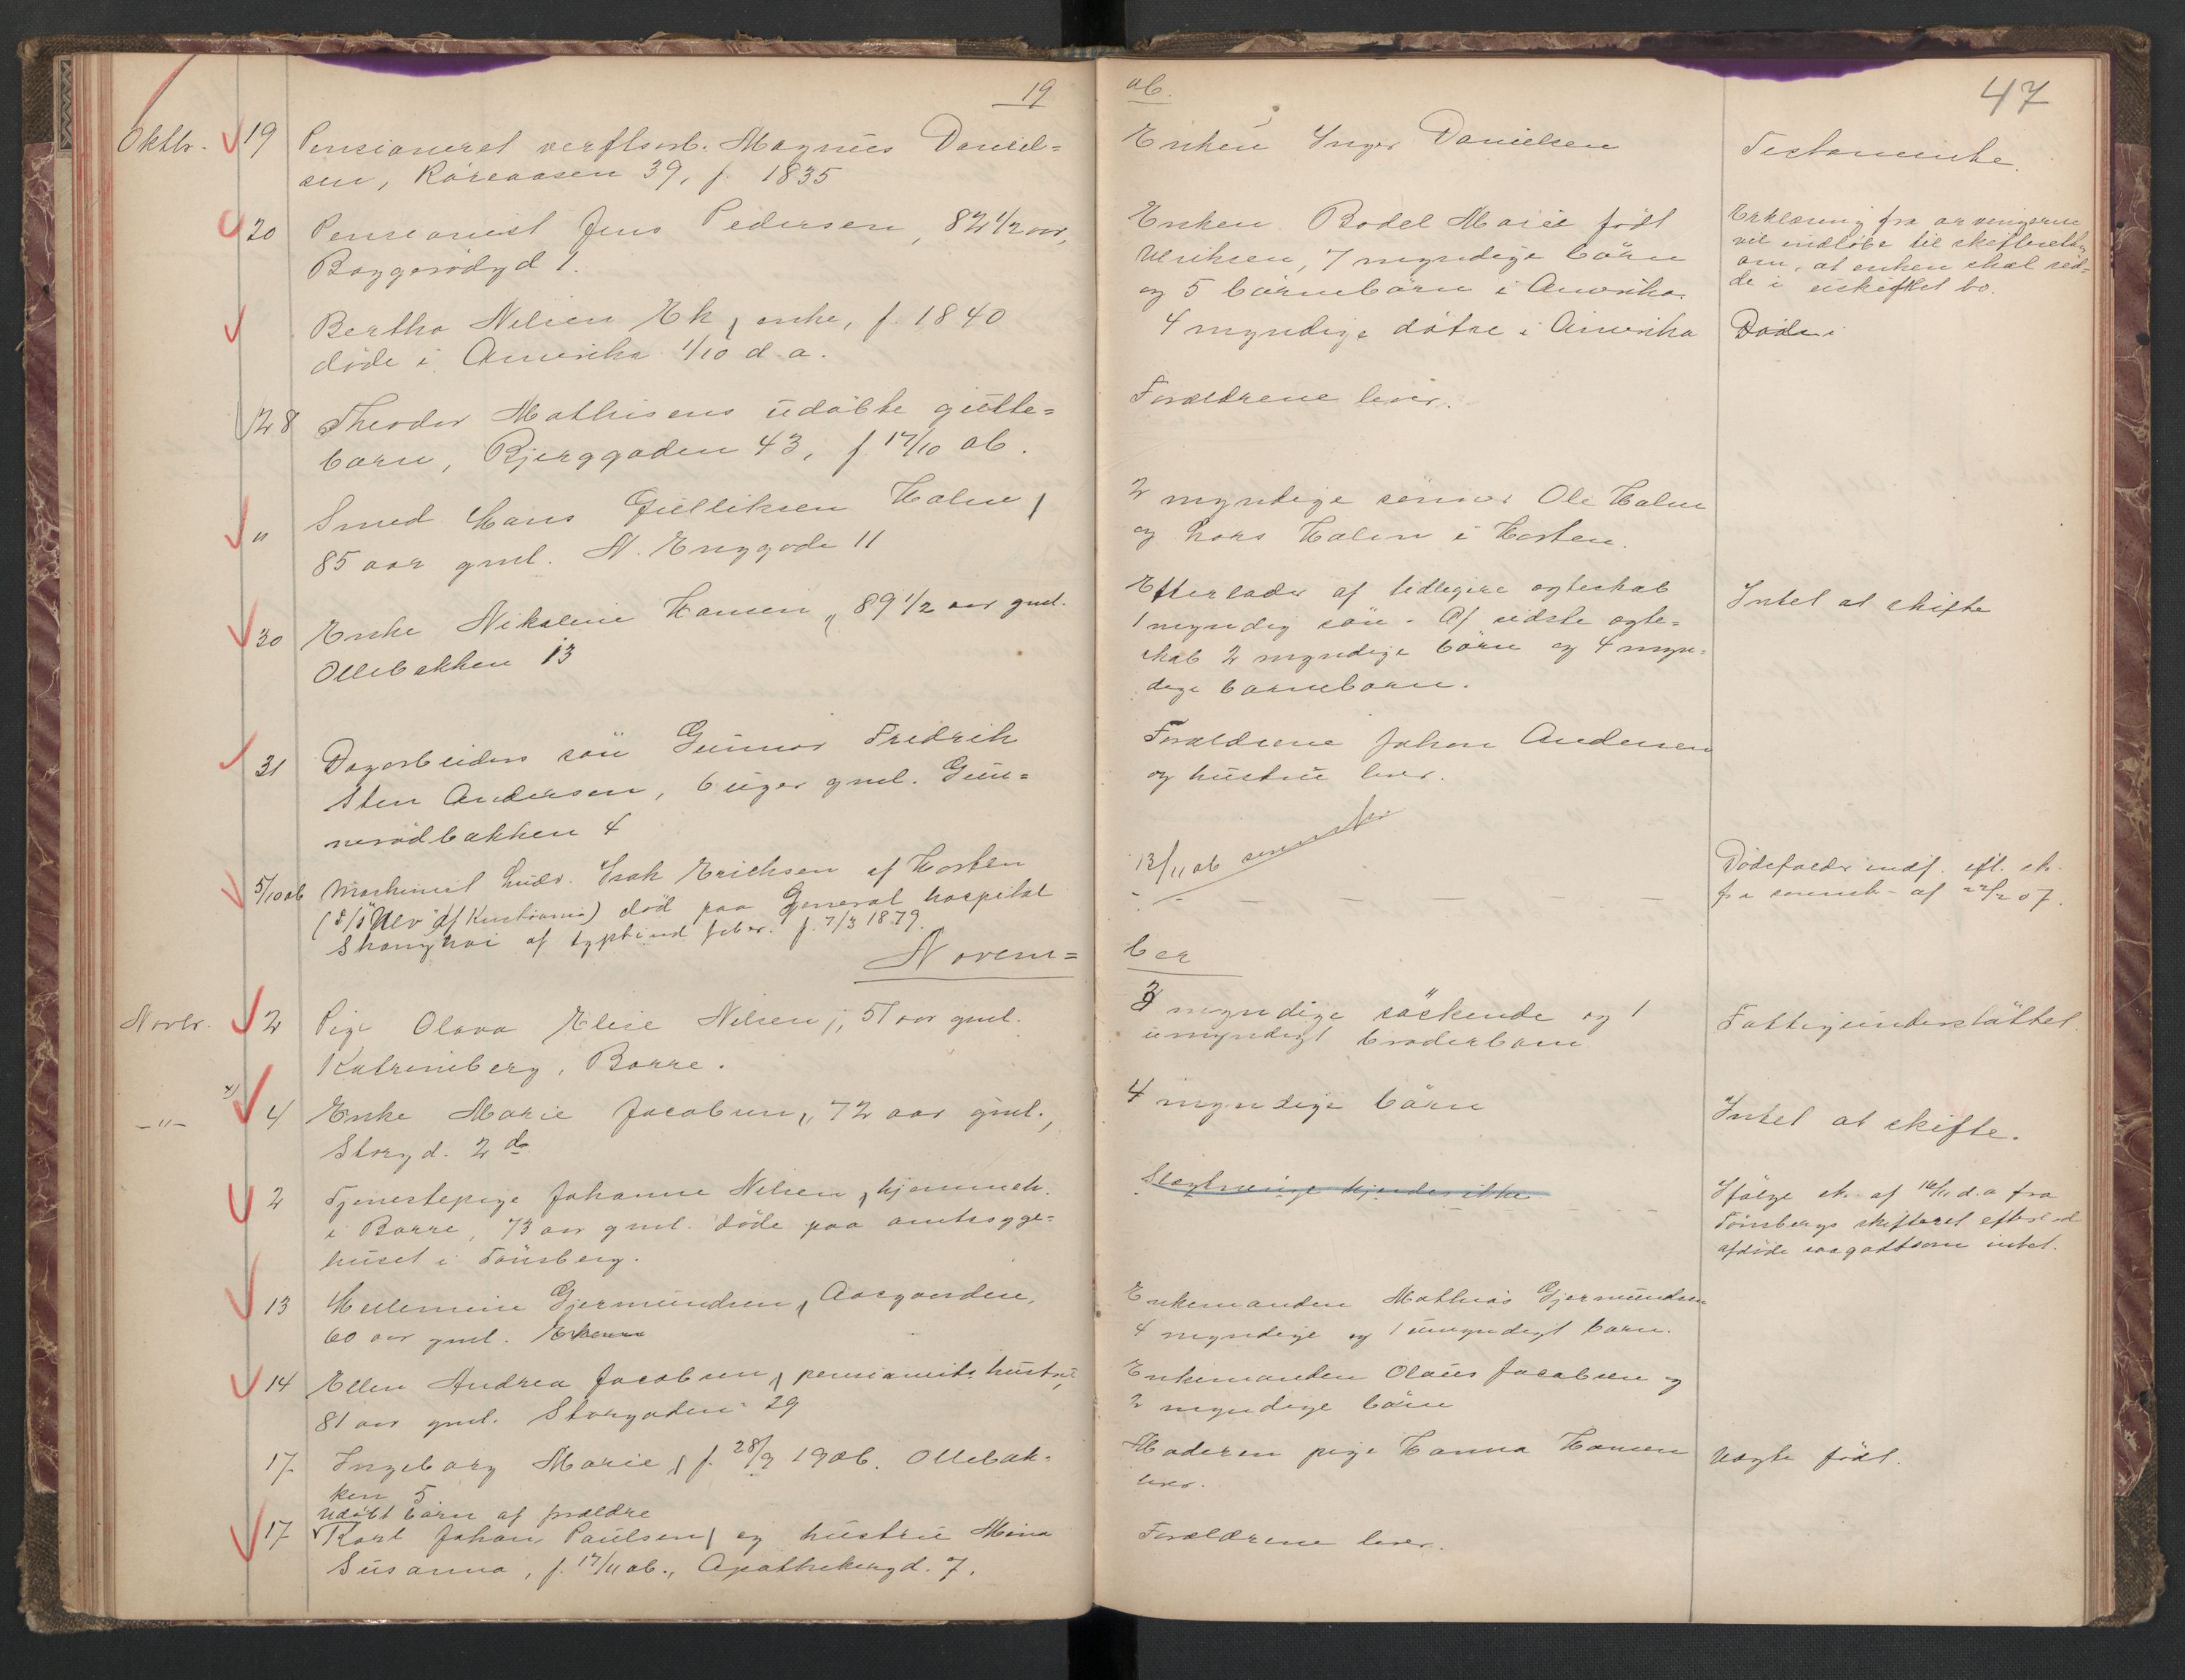 19
06.
47
Oktbr. 19 Pensioneret verftsarb. Magnus Daniel=
sen, Röreaasen 39, f. 1835
Enken Inger Danielsen
Testamente.
20 Pensionist Jens Pedersen, 82 1/2 aar,
Baggerödgd 1.
Enken Bodel Marie födt
Ulriksen, 7 myndige börn
og 5 barnebörn i Amerika
Erklæring fra arvingerne
vil indløbe til skifteretten
om, at enken skal sid-
de i uskiftet bo.
Bertha Nilsen Ek, enke, f. 1840
döde i Amerika 1/10 d. a.
4 myndige dötre i Amerika
Döde i
28 Theodor Mathisens udöbte gutte=
barn, Bjerggaden 43, f. 17/10 06.
Forældrene lever.
" Smed Hans Gulliksen Holm,
85 aar gml. N. Enggade 11
2 myndige sönner Ole Holm
og Lars Holm i Horten.
30 Enke Nikoline Hansen, 89 1/2 aar gml.
Ollebakken 13
Efterlader af tidligere ægteskab
1 myndig sön. Af sidste ægte=
skab 2 myndige börn og 4 myn=
dige barnebarn.
Intet at skifte
31 Dagarbeiders sön Gunnar Fredrik
Sten Andersen, 6 uger gml. Gun=
nerödbakken 4
Forældrene Johan Andersen
og hustru lever.
5/10 06 Maskinist Ludv. Isak Erichsen af Horten
(D/S "Ulv" af Kristiania) död paa General hospital
Shanghai af typhoid feber. f. 7/3 1879.
13/11 06
Dödsfaldet indf. eft. sk.
fra af 22/2 07.
Novem=
ber
Novbr. 2 Pige Olava Elise Nilsen, 51 aar gml.
Katrineberg, Borre.
3 myndige söskende og 1
umyndigt broderbarn
Fattigunderstöttet.
-"- 4 Enke Marie Jacobsen, 72 aar gml.,
Storgd. 2 da
4 myndige börn
Intet at skifte.
2 Tjenestepige Johanne Nilsen, hjemmeh.
i Borre, 73 aar gml. döde paa amtssyge=
huset i Tönsberg.
Slægtninge kjendes ikke
Ifölge sk. af 16/11 d. a fra
Tönsbergs skifteret efterlod
afdöde saagodtsom intet.
13 Gjermundsen, Aasgaarden,
60 aar gml.
Enkemanden Mathias Gjermundsen
4 myndige og 1 umyndigt barn.
14 Ellen Andrea Jacobsen, pensionists hustru,
81 aar gml. Storgaden 29
Enkemanden Olaus Jacobsen og
2 myndige börn
17 Ingeborg Marie, f. 28/9 1906. Ollebak-
ken 5
Moderen pige Hanna Hansen
lever.
Uægte födt.
Udöbt barn af forældre
17 Karl Johan Paulsen og hustru Mina
Susanna, f. 17/11 06., Apothekergd. 7.
Forældrene lever.